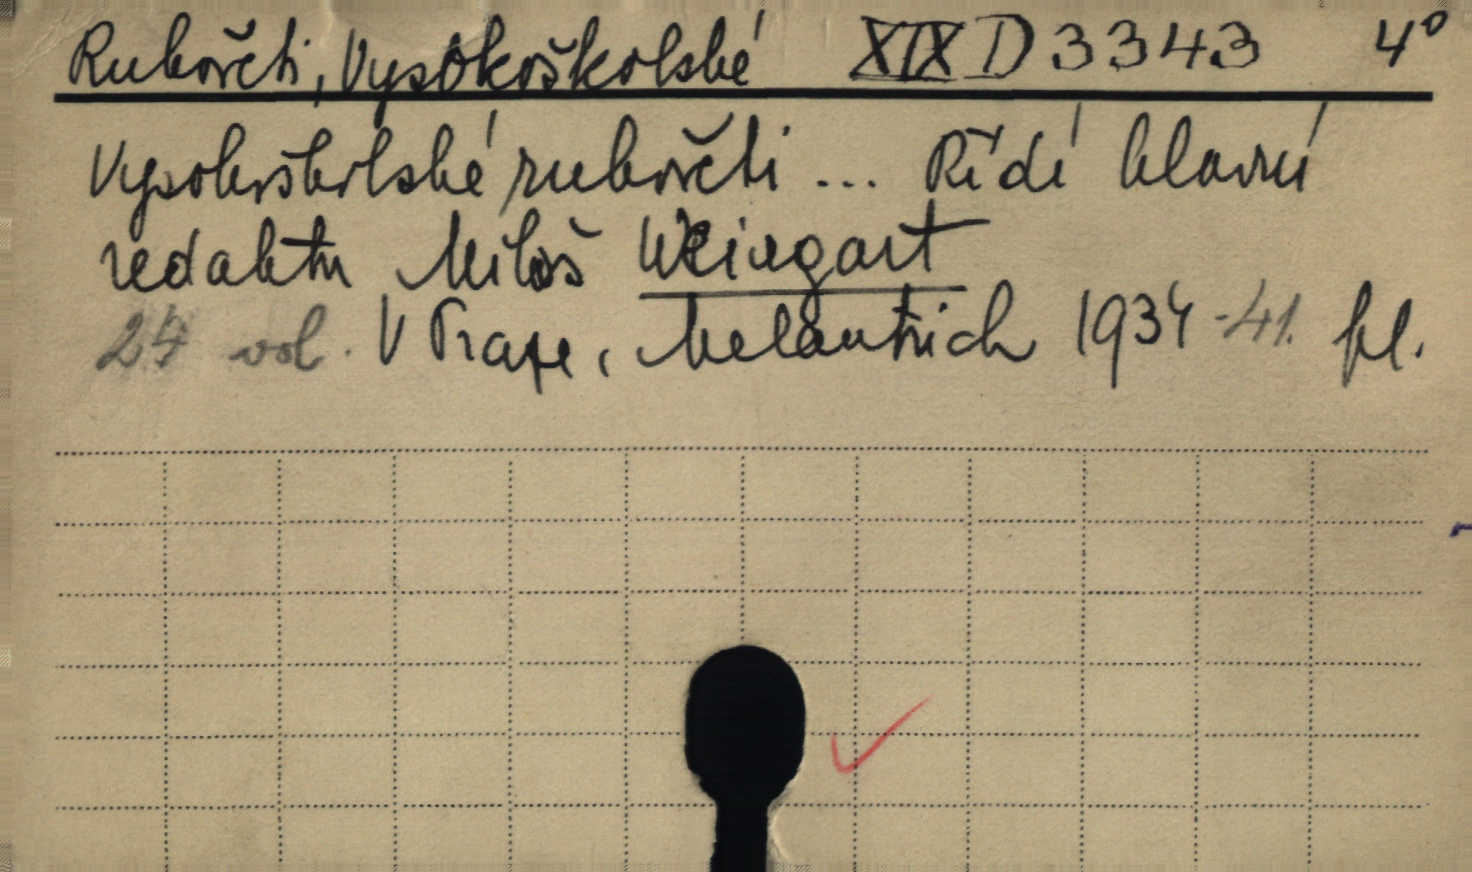 Rukověti, Vysokoškolské XIX D 3343 4°
Vysokoškolské rukověti ... Řídí hlavní
redaktor Miloš Weingart
24 vol. V Praze, Melantrich 1934-41. pl.